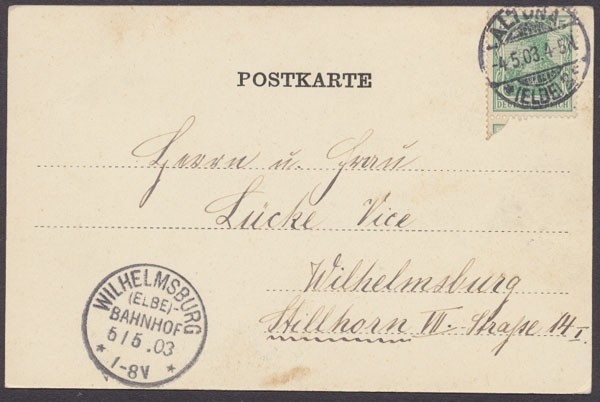 POSTKARTE
ALTONA
-4.5.03.4-5N
* (ELBE)
Herrn u. Frau
Lücke Vice
Wilhelmsburg
Stillhorn VII. Straße 14 I.
WILHELMSBURG
(ELBE)-
BAHNHOF
5/5.03
* 1-8V *